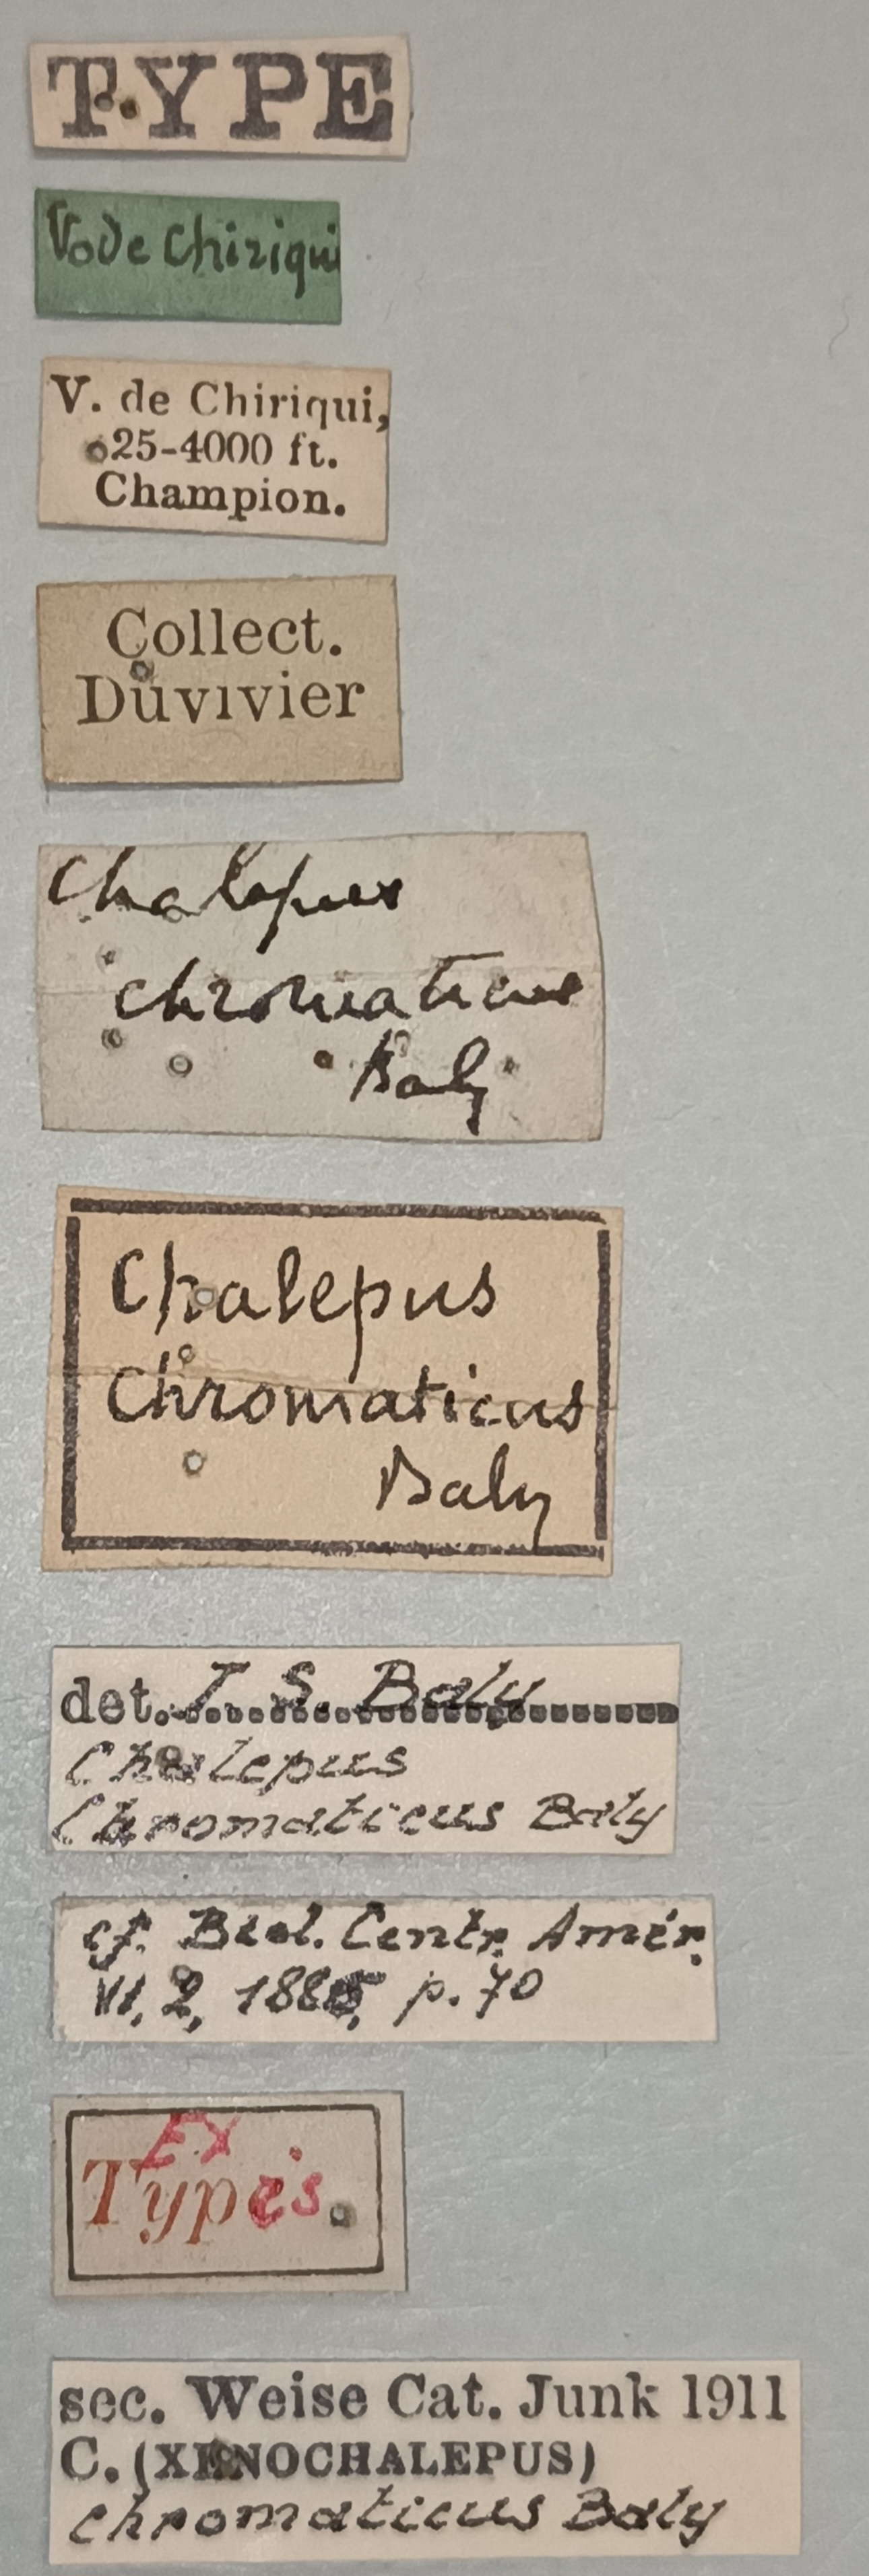 TYPE
V. de Chiriqui
V. de Chiriqui,
25-4000 ft.
Champion.
Collect.
Duvivier
Chalepus
chromaticus
Baly
Chalepus
Chromaticus
Baly
det. J. S. Baly
Chalepus
Chromaticus Baly
cf. Biol. Centr. Amér.
VI, 2, 1885, p. 70
Ex
Types.
sec. Weise Cat. Junk 1911
C. (XENOCHALEPUS)
chromaticus Baly